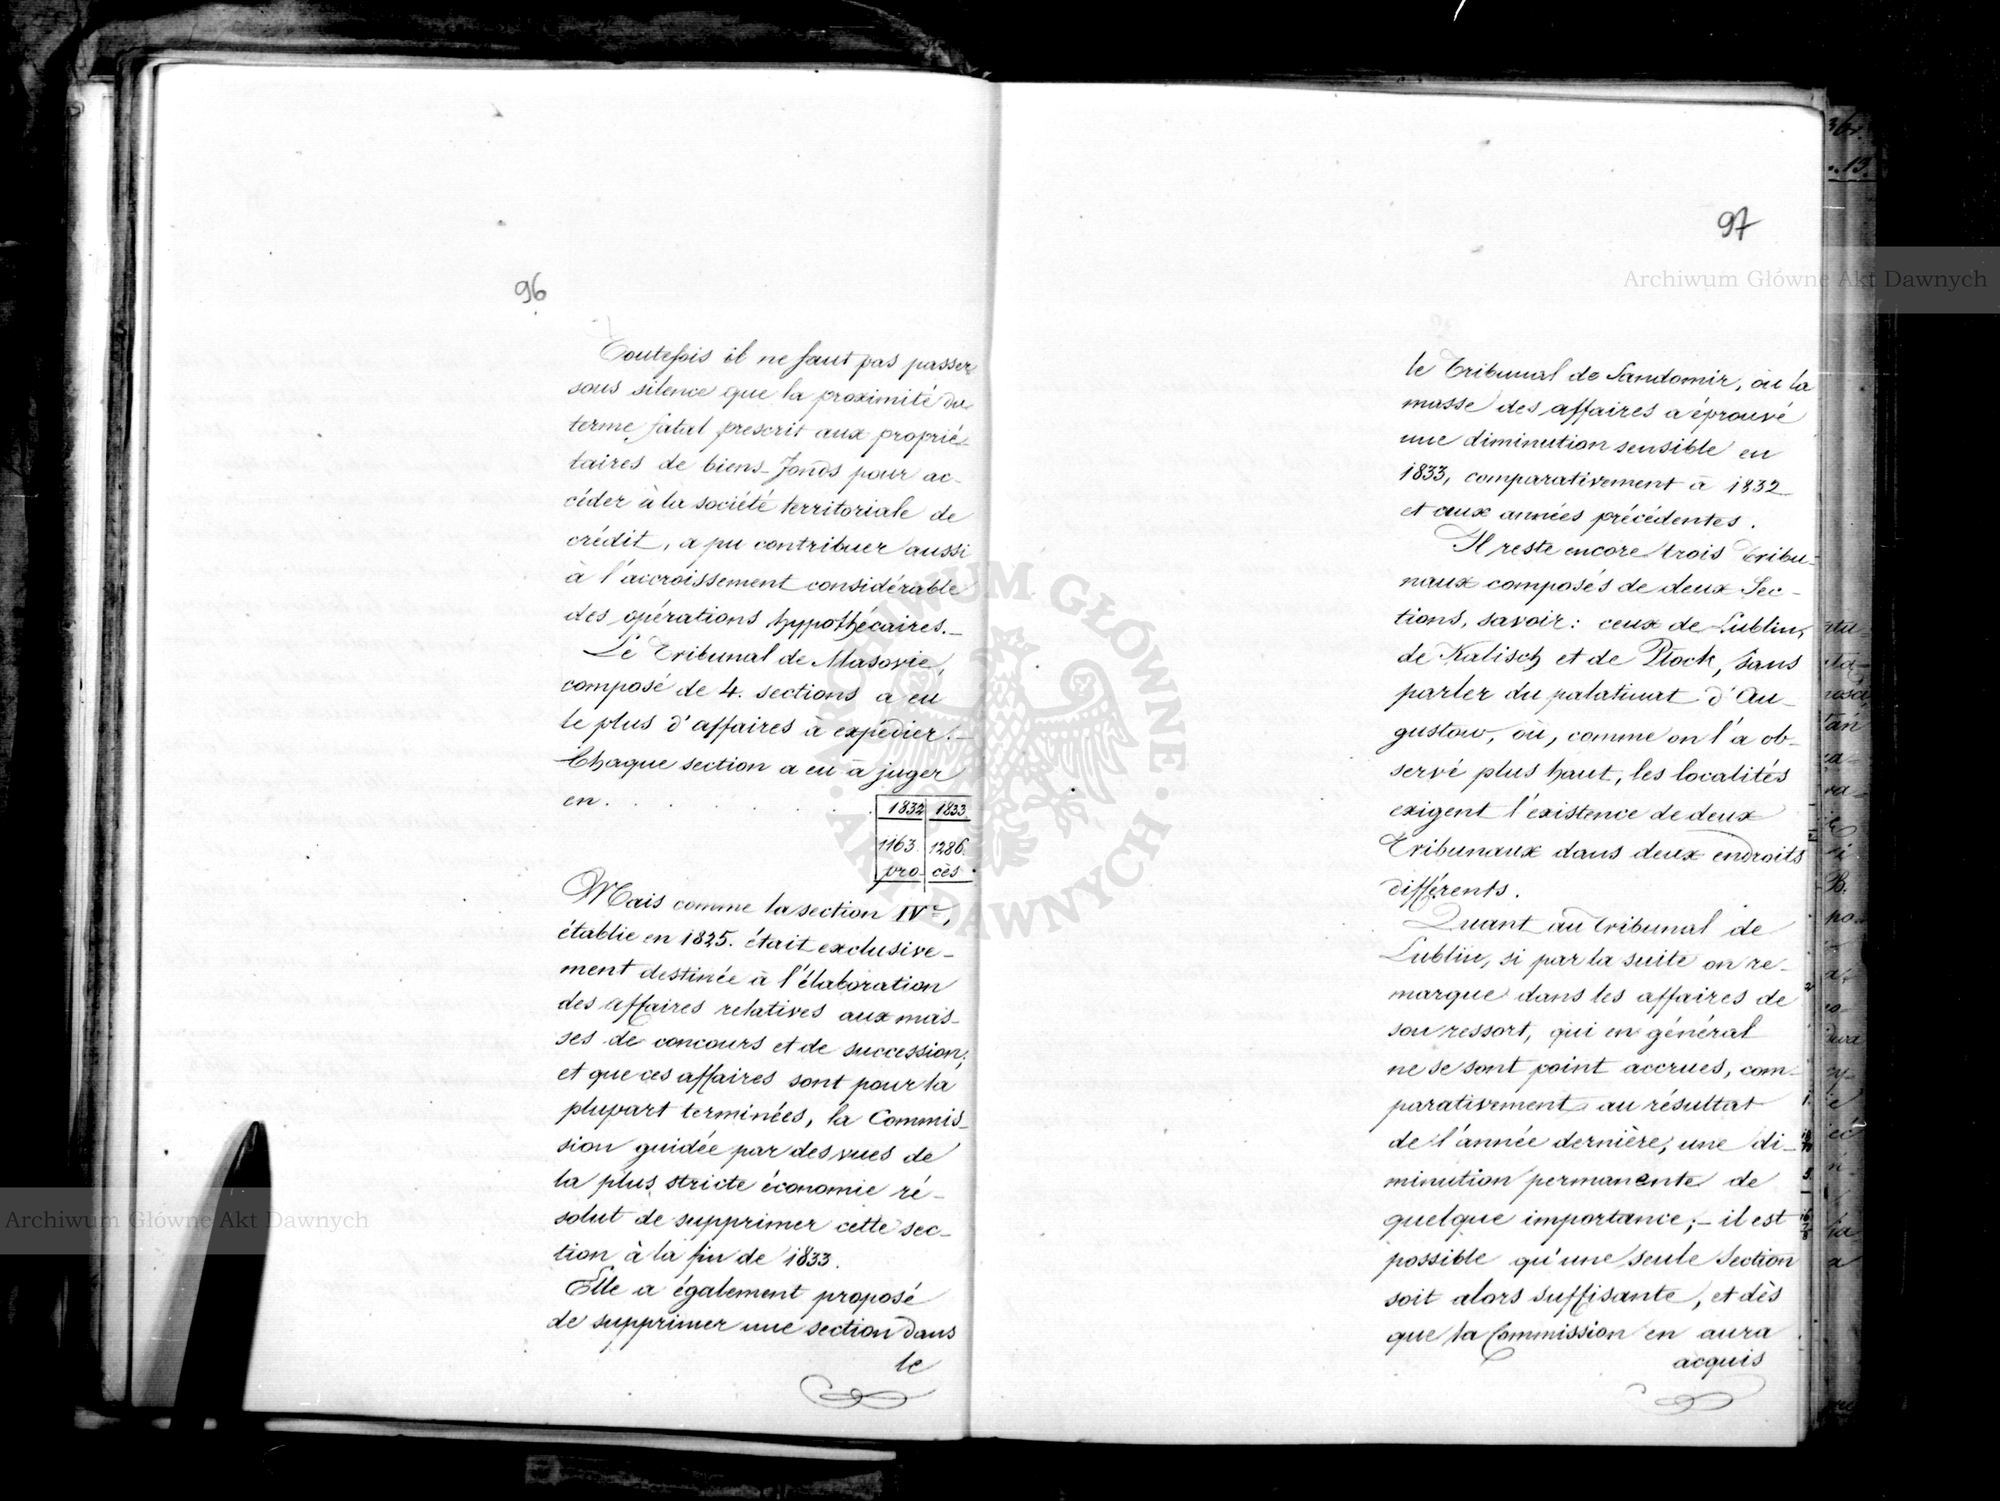 96
Toutefois il ne faut pas passer
sous silence que la proximité du
terme fatal prescrit aux proprié-
taires de biens-fonds pour ac-
céder à la société territoriale de
crédit, a pu contribuer aussi
à l'accroissement considérable
des opérations hypothécaires.-
Le Tribunal de Masovie,
composé de 4. sections a eu
le plus d'affaires à expédier.-
Chaque section a eu à juger
en . . . . . .
1832 1833
1163. 1286.
pro- cès.
Mais comme la section IVe,
établie en 1825. était exclusive-
ment destinée à l'élaboration
des affaires relatives aux mas-
ses de concours et de succession;
et que ces affaires sont pour la
plupart terminées, la Commis-
sion guidée par des vues de
la plus stricte économie ré-
solut de supprimer cette sec-
tion à la fin de 1833.
Elle a également proposé
de supprimer une section dans
le
97
le Tribunal de Sandomir, où la
masse des affaires a éprouvé
une diminution sensible en
1833, comparativement à 1832
et aux années précédentes.
Il reste encore trois Tribu-
naux composés de deux Sec-
tions, savoir: ceux de Lublin,
de Kalisch et de Plock, sans
parler du palatinat d'Au-
gustow, où, comme on l'a ob-
servé plus haut, les localités
exigent l'existence de deux
Tribunaux dans deux endroits
différents.
Quant au Tribunal de
Lublin, si par la suite on re-
marque dans les affaires de
son ressort, qui en général
ne se sont point accrues, com-
parativement au résultat
de l'année dernière, une di-
minution permanente de
quelque importance;- il est
possible qu'une seule Section
soit alors suffisante, et dès
que la Commission en aura
acquis
Archiwum Główne Akt Dawnych
Archiwum Główne Akt Dawnych
ARCHIWUM GŁÓWNE · AKT DAWNYCH ·